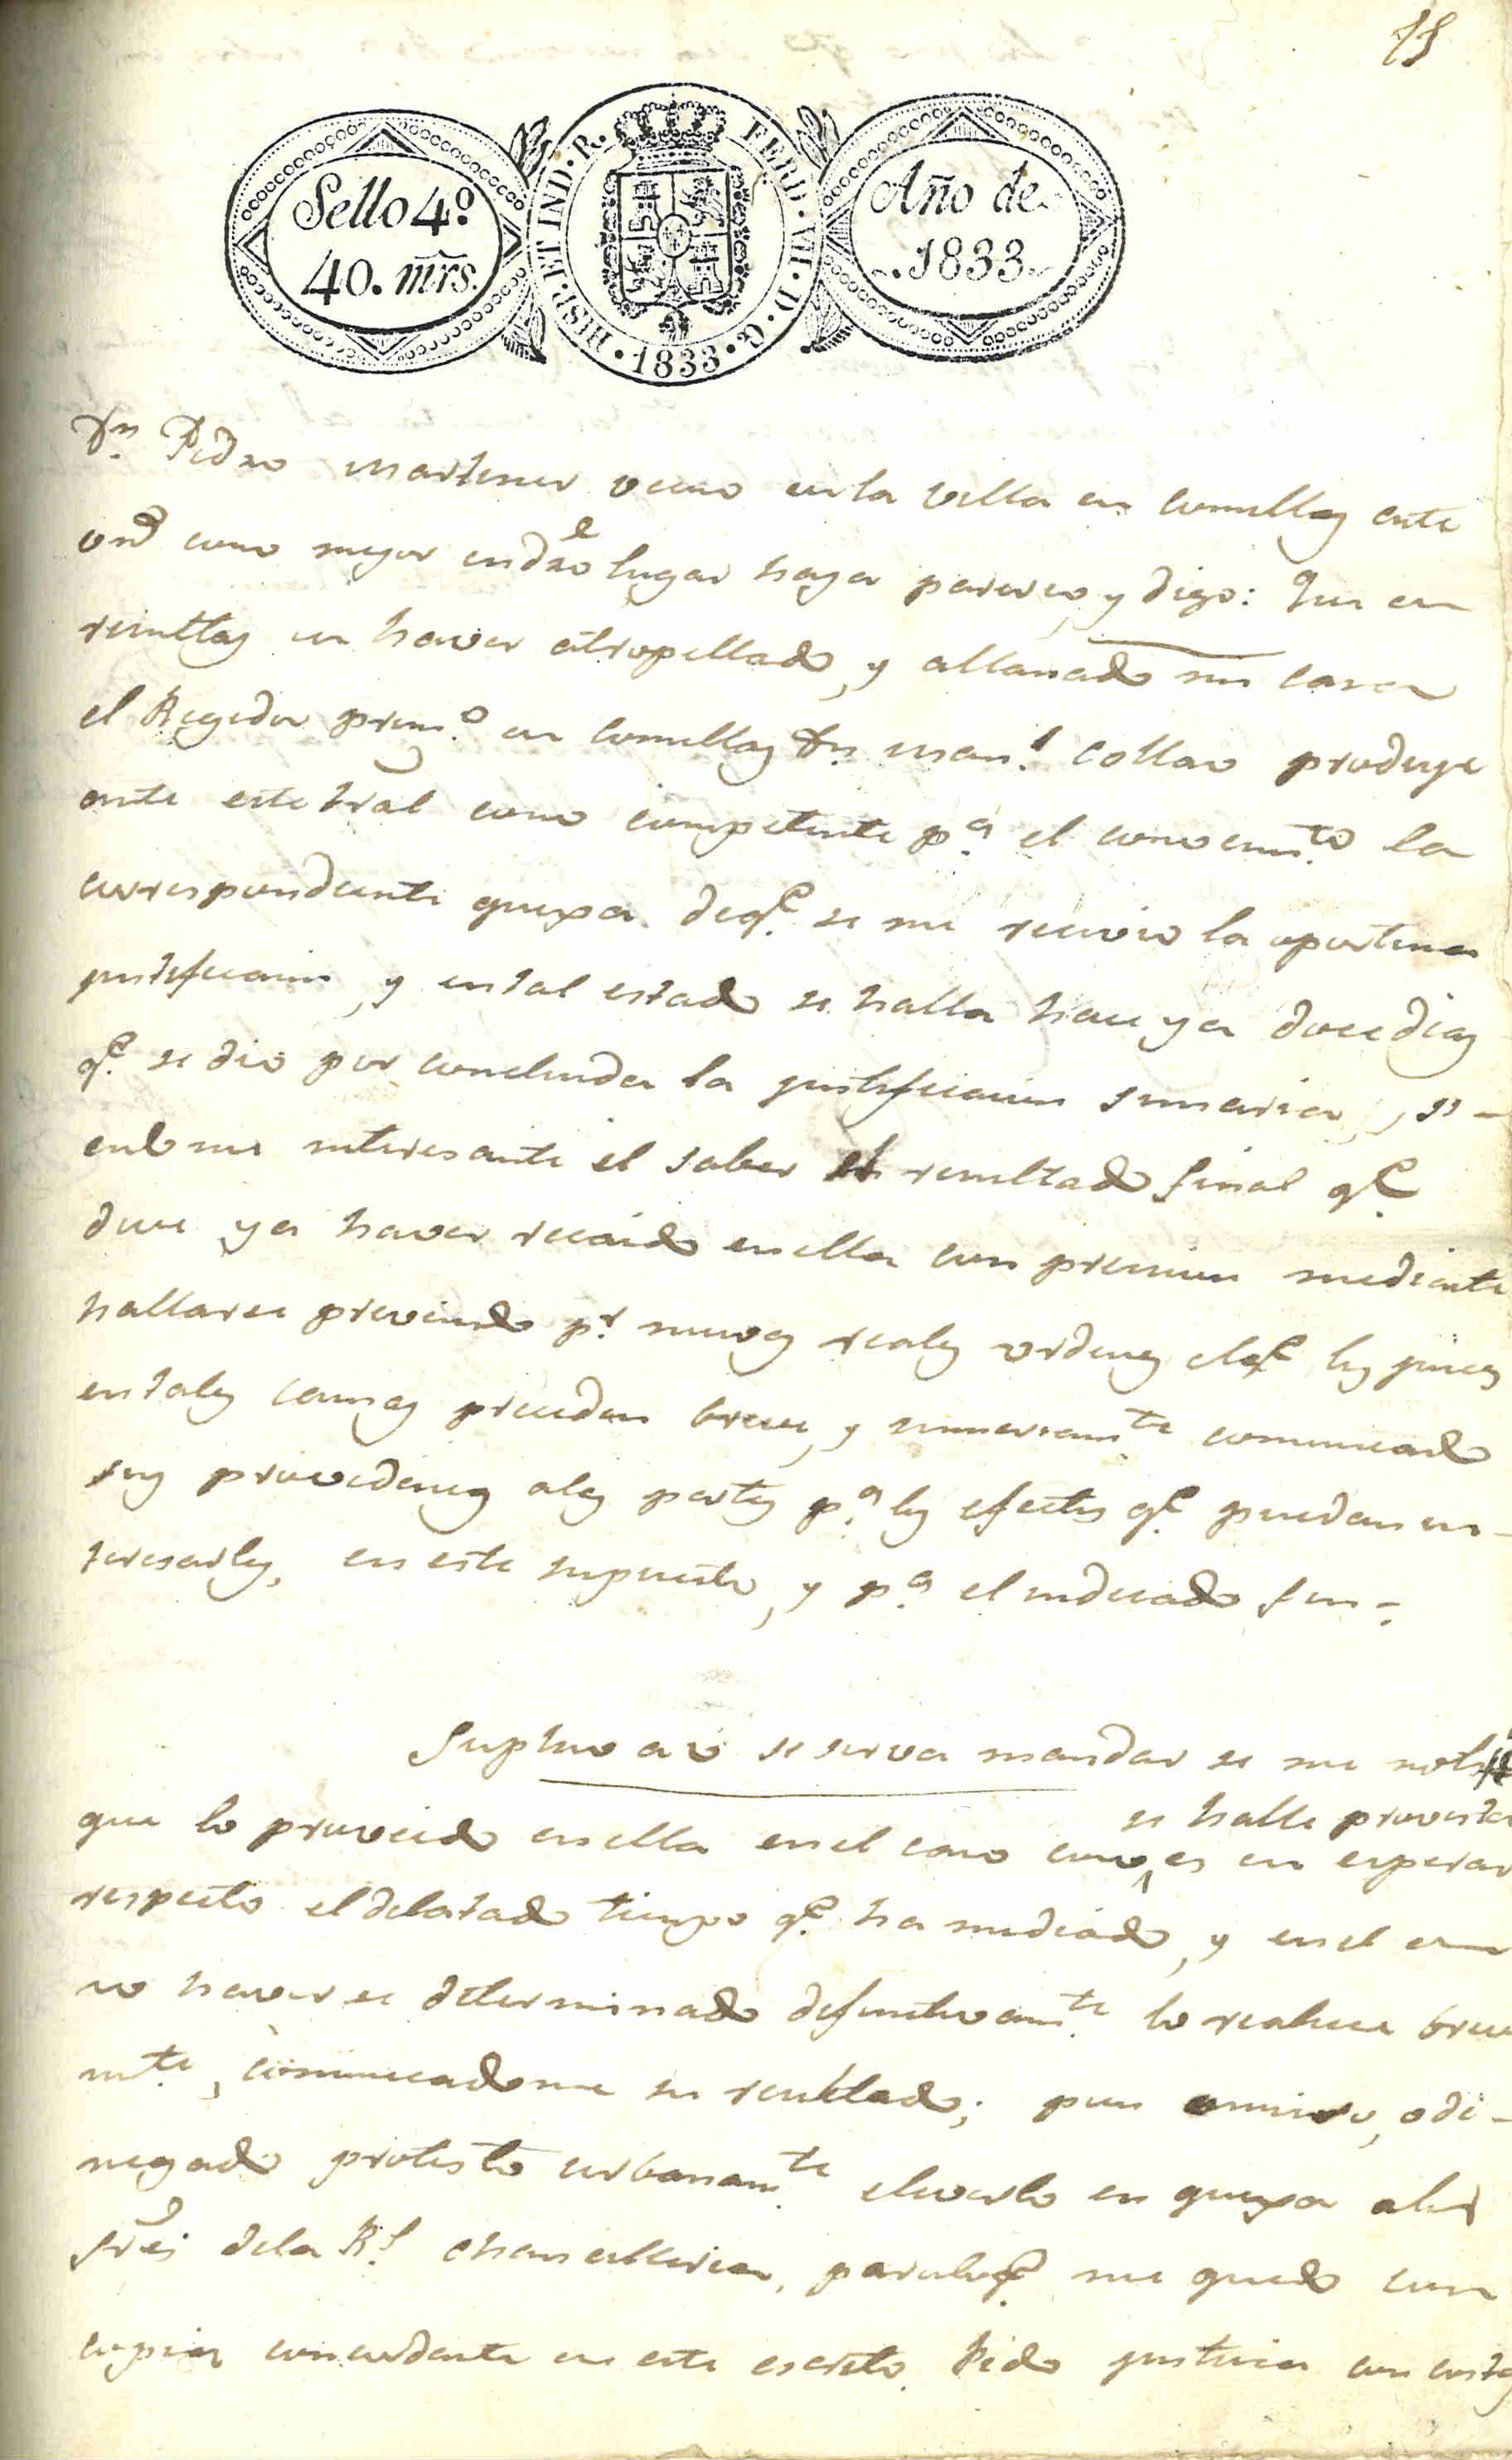 Sello 4º
40. mrs.
HISP. ET IND. R.
FERD. VII. D. G.
. 1833 .
Año de
1833
Dn. Pedro Martinez vecino en la villa en Comillas ante
vmd como mejor en dro lugar haya parezco, y digo: Que en
resultas en haver atropellado, y allanado mi casa
el Regidor prim.o en Comillas Dn. Man.l Collao produge
ante este tral como competente p.a el conocim.to la
correspondiente quexa. de q.e se me recivio la oportuna
justificacion, y en tal estado se halla hace ya doce dias
q.e se dio por concluida la justificacion sumaria, si-
endome interesante el saber el resultado final q.e
deve ya haver recaido en ella con precision mediante
hallarse prevenido p.r nuevas reales ordenes el q.e los jueces
en tales causas procedan breve, y sumariam.te comunicado
sus providencias a las partes p.a los efectos q.e puedan in-
teresarles, en este supuesto, y p.a el indicado fin-
Suplico a v se sirva mandar se me notifi
se halle provista
que lo proveido en ella en el caso como es en esperar
respecto el dilatado tiempo q.e ha mediado, y en el en
no haverse determinado definitivam.te lo realice breve
m.te, comunicadome su resultado; pues omiso, o de-
negado protesto urbanam.te elevarlo en quexa a los
sres de la R.l Chancilleria, para lo q.e me quedo con
copia concordante en este escrito. Pido justicia con costas